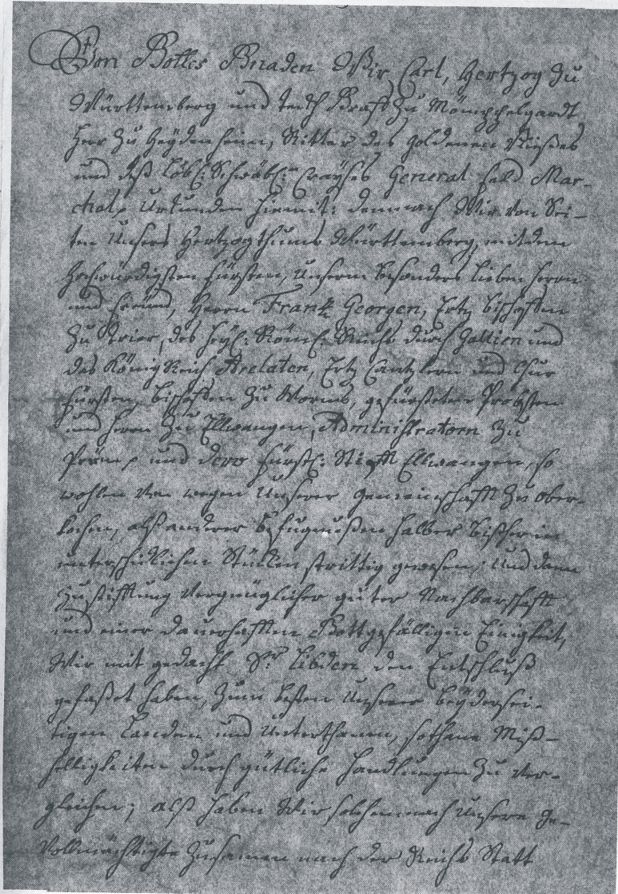 Von Gottes Gnaden Wir Carl, Hertzog zu
Württemberg und Teckh Graff zu Mömppelgardt
Herr zu Heydenheim, Ritter des goldenen Vließes
und deß löbl: Schwäb: Crayses General Feld Mar-
chal, Urkunden hiemit: demnach Wir von Sei-
ten Unsers Hertzogthums Württemberg, mit dem
Hochwürdigsten Fürsten, Unserm besonders lieben Herrn
und Freund, Herrn Frantz Georgen, Ertz Bischoffen
zu Trier, des Heyl: Röm: Reichs durch Gallien und
das Königreich Arelaten, Ertz Cantzlern und Chur
Fürsten, Bischoffen zu Worms, gefürsteter Probsten
und Herrn zu Ellwangen, Administratorn zu
Prüm, und dero Fürstl: Stifft Ellwangen, so
wohlen von wegen Unserer Gemeinschafft zu Ober-
kochen, alß anderer Befugnußen halber bißher in
unterschidlichen Stücken strittig gewesen; Und dann
zu Stifftung vergnüglicher guter Nachbarschafft
und einer dauerhafften Gottgefälligen Einigkeit,
Wir mit gedacht Sr. Libden den Entschluß
gefaßet haben, zum besten Unserer beydersei-
tigen Landen und Unterthanen, sothane Miß-
helligkeiten durch gütliche Handlungen zu ver-
gleichen; alß haben Wir solchemnach Unsere Ge-
vollmächtigte zusamen nach der Reichs Statt